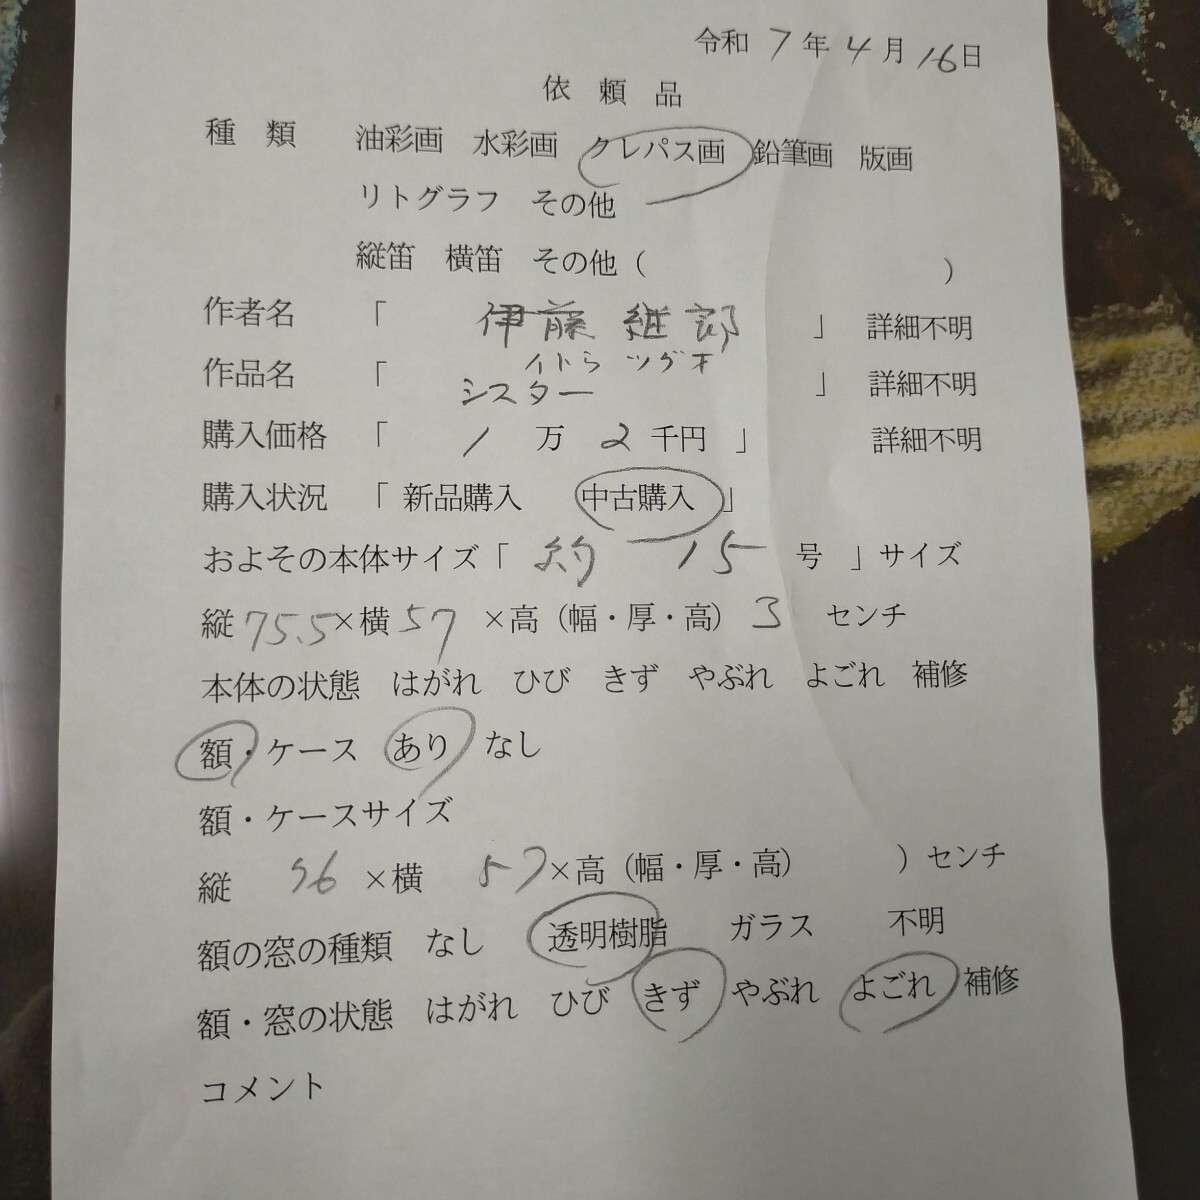 令和 7 年 4 月 16日
依 頼 品
種 類 油彩画 水彩画 クレパス画 鉛筆画 版画
リトグラフ その他
縦笛 横笛 その他（ ）
作者名 「 伊藤 継郎 」 詳細不明
イトう ツグオ
作品名 「 シスター 」 詳細不明
購入価格 「 1 万 2 千円 」 詳細不明
購入状況 「 新品購入 中古購入 」
およその本体サイズ「 約 15 号 」サイズ
縦 75.5 ×横 57 ×高（幅・厚・高） 3 センチ
本体の状態 はがれ ひび きず やぶれ よごれ 補修
額・ケース あり なし
額・ケースサイズ
縦 ×横 57 ×高（幅・厚・高） ）センチ
額の窓の種類 なし 透明樹脂 ガラス 不明
額・窓の状態 はがれ ひび きず やぶれ よごれ 補修
コメント